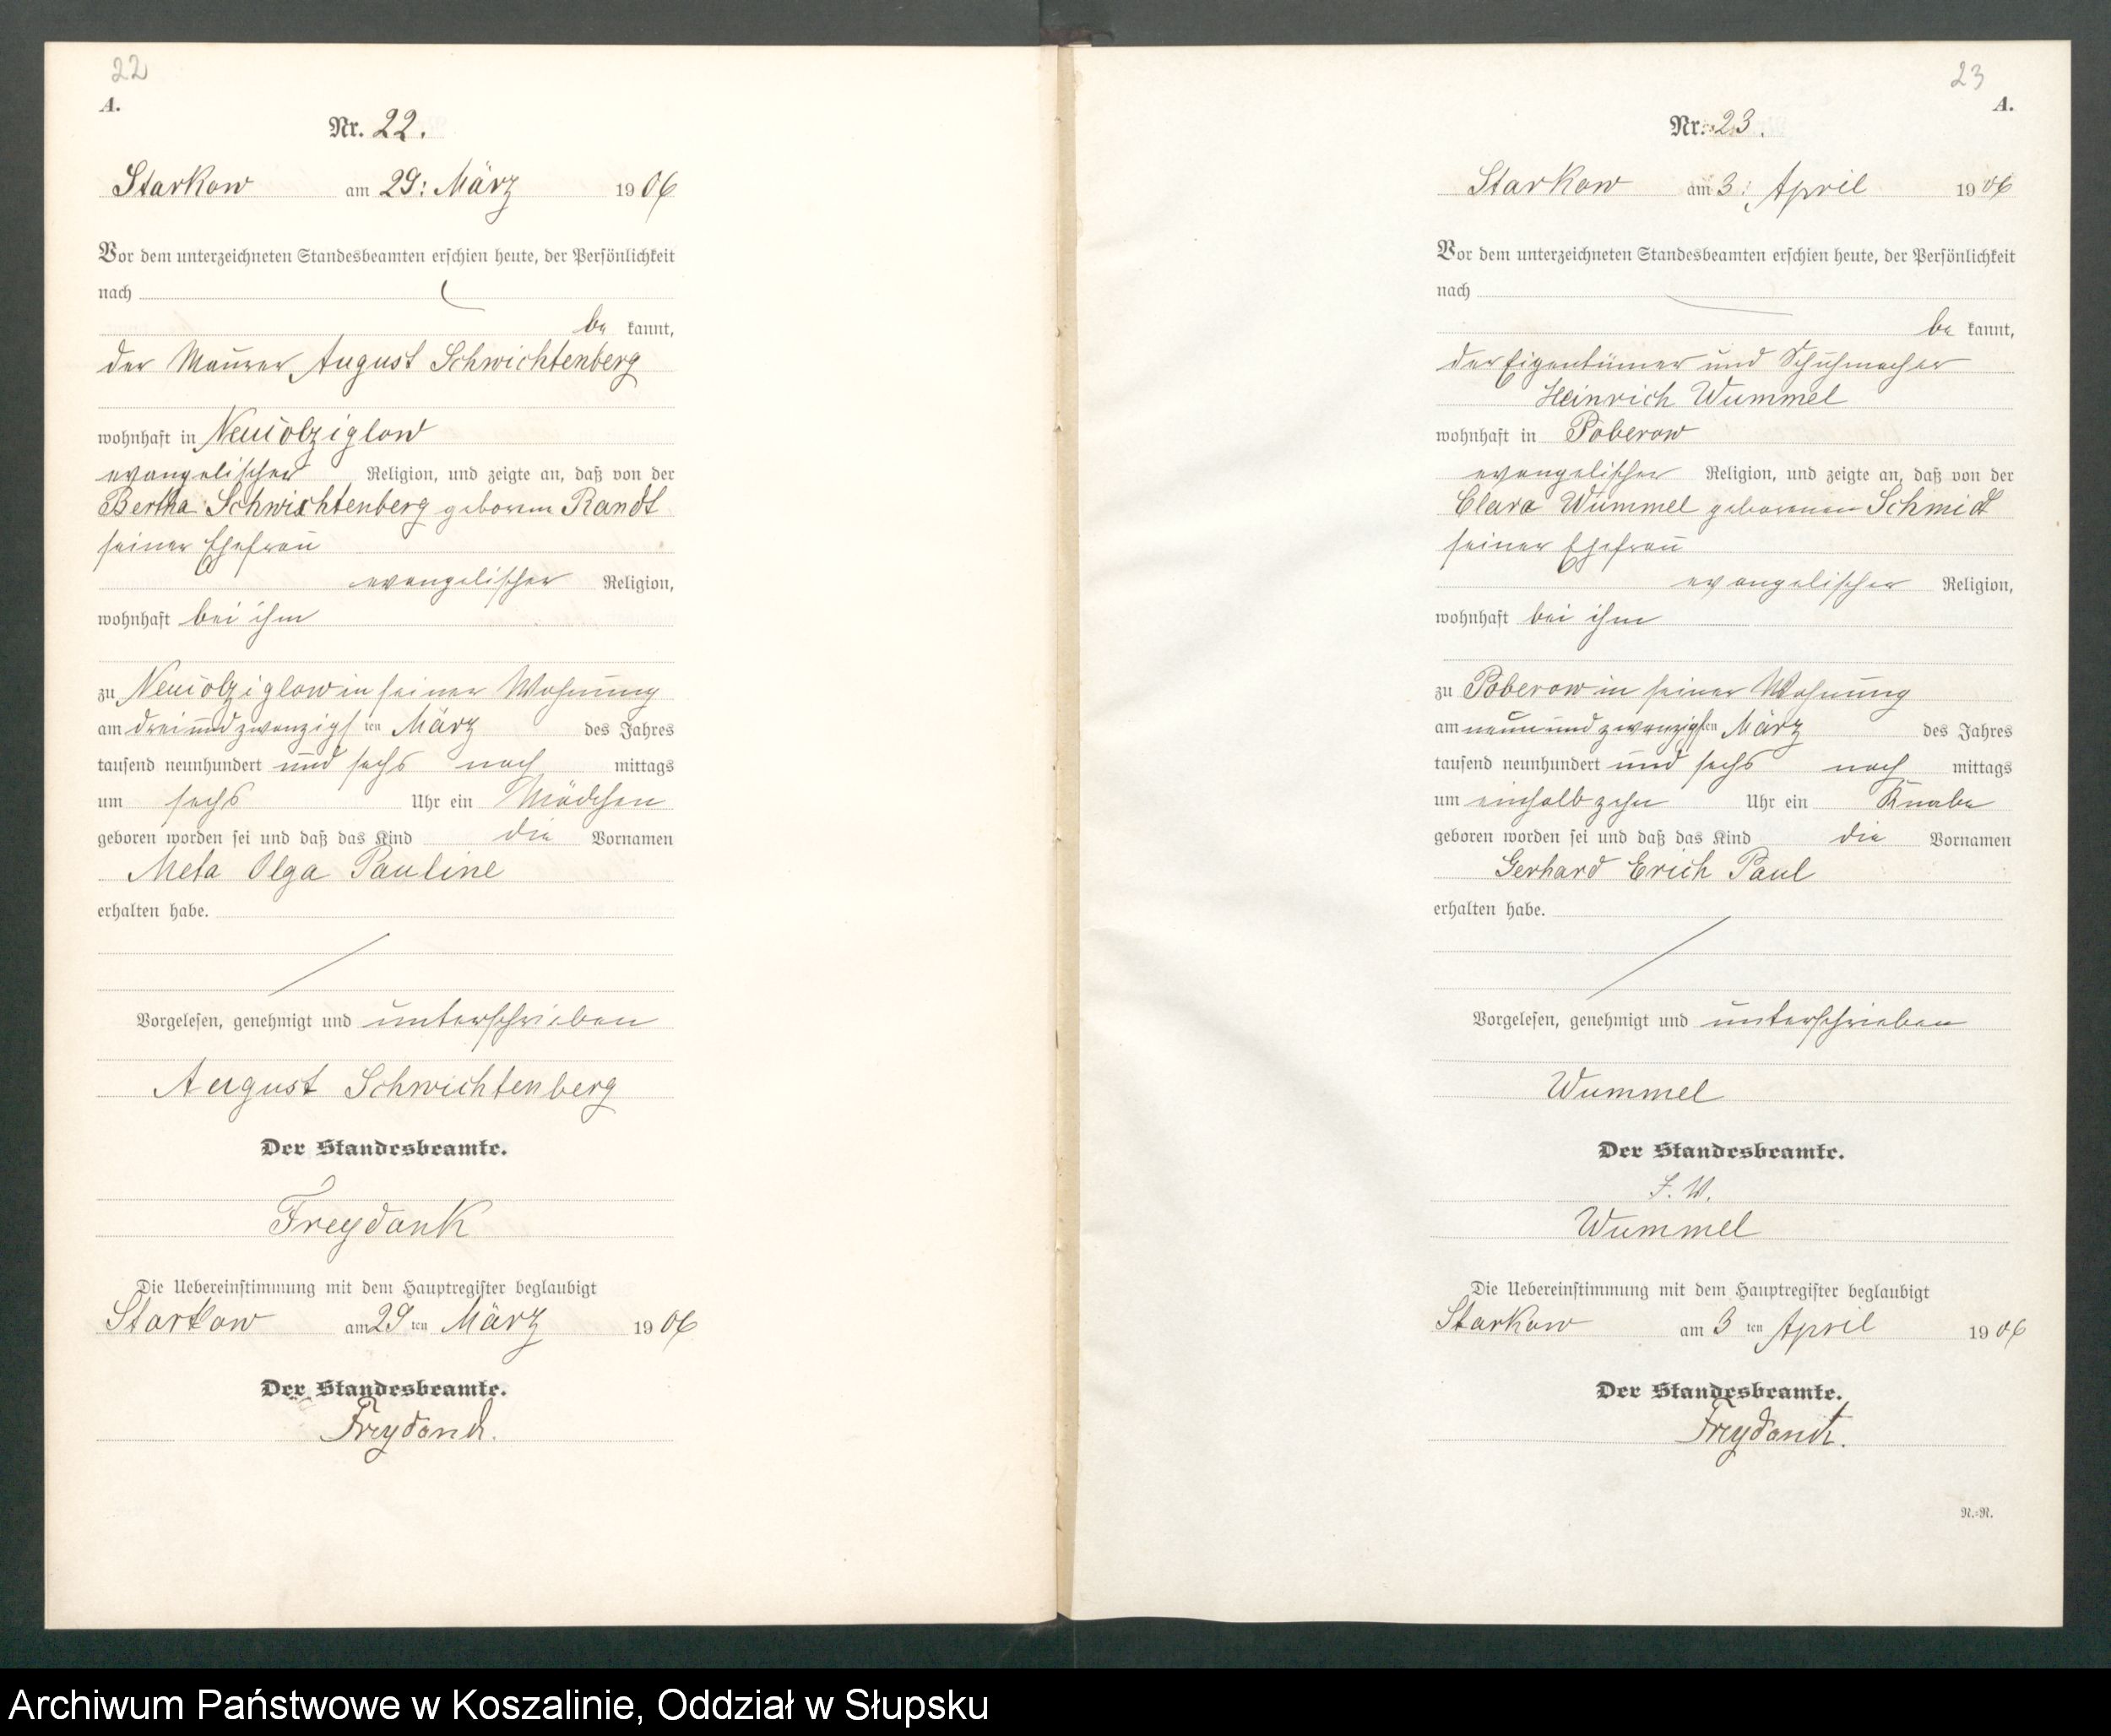 22
A.
Nr. 22.
Starkow am 29: März 1906
Vor dem unterzeichneten Standesbeamten erschien heute, der Persönlichkeit
nach
be kannt,
der Maurer August Schwichtenberg
wohnhaft in Neujolziglow
evangelischer Religion, und zeigte an, daß von der
Bertha Schwichtenberg geboren Randt
seiner Ehefrau
evangelischer Religion,
wohnhaft bei ihm
zu Neujolziglow in seiner Wohnung
am dreiundzwanzigsten März des Jahres
tausend neunhundert und sechs nach mittags
um sechs Uhr ein Mädchen
geboren worden sei und daß das Kind die Vornamen
Meta Olga Pauline
erhalten habe.
Vorgelesen, genehmigt und unterschrieben
August Schwichtenberg
Der Standesbeamte.
Freydank
Die Uebereinstimmung mit dem Hauptregister beglaubigt
Starkow am 29 ten März 1906
Der Standesbeamte.
Freydank.
23
A.
Nr. 23.
Starkow am 3: April 1906
Vor dem unterzeichneten Standesbeamten erschien heute, der Persönlichkeit
nach
be kannt,
der Eigentümer und Schuhmacher
Heinrich Wummel
wohnhaft in Poberow
evangelischer Religion, und zeigte an, daß von der
Clara Wummel geborenen Schmidt
seiner Ehefrau
evangelischer Religion,
wohnhaft bei ihm
zu Poberow in seiner Wohnung
am neunundzwanzigsten März des Jahres
tausend neunhundert und sechs nach mittags
um einhalb zehn Uhr ein Knabe
geboren worden sei und daß das Kind die Vornamen
Gerhard Erich Paul
erhalten habe.
Vorgelesen, genehmigt und unterschrieben
Wummel
Der Standesbeamte.
I. V.
Wummel
Die Uebereinstimmung mit dem Hauptregister beglaubigt
Starkow am 3 ten April 1906
Der Standesbeamte.
Freydank.
R.=R.
Archiwum Państwowe w Koszalinie, Oddział w Słupsku